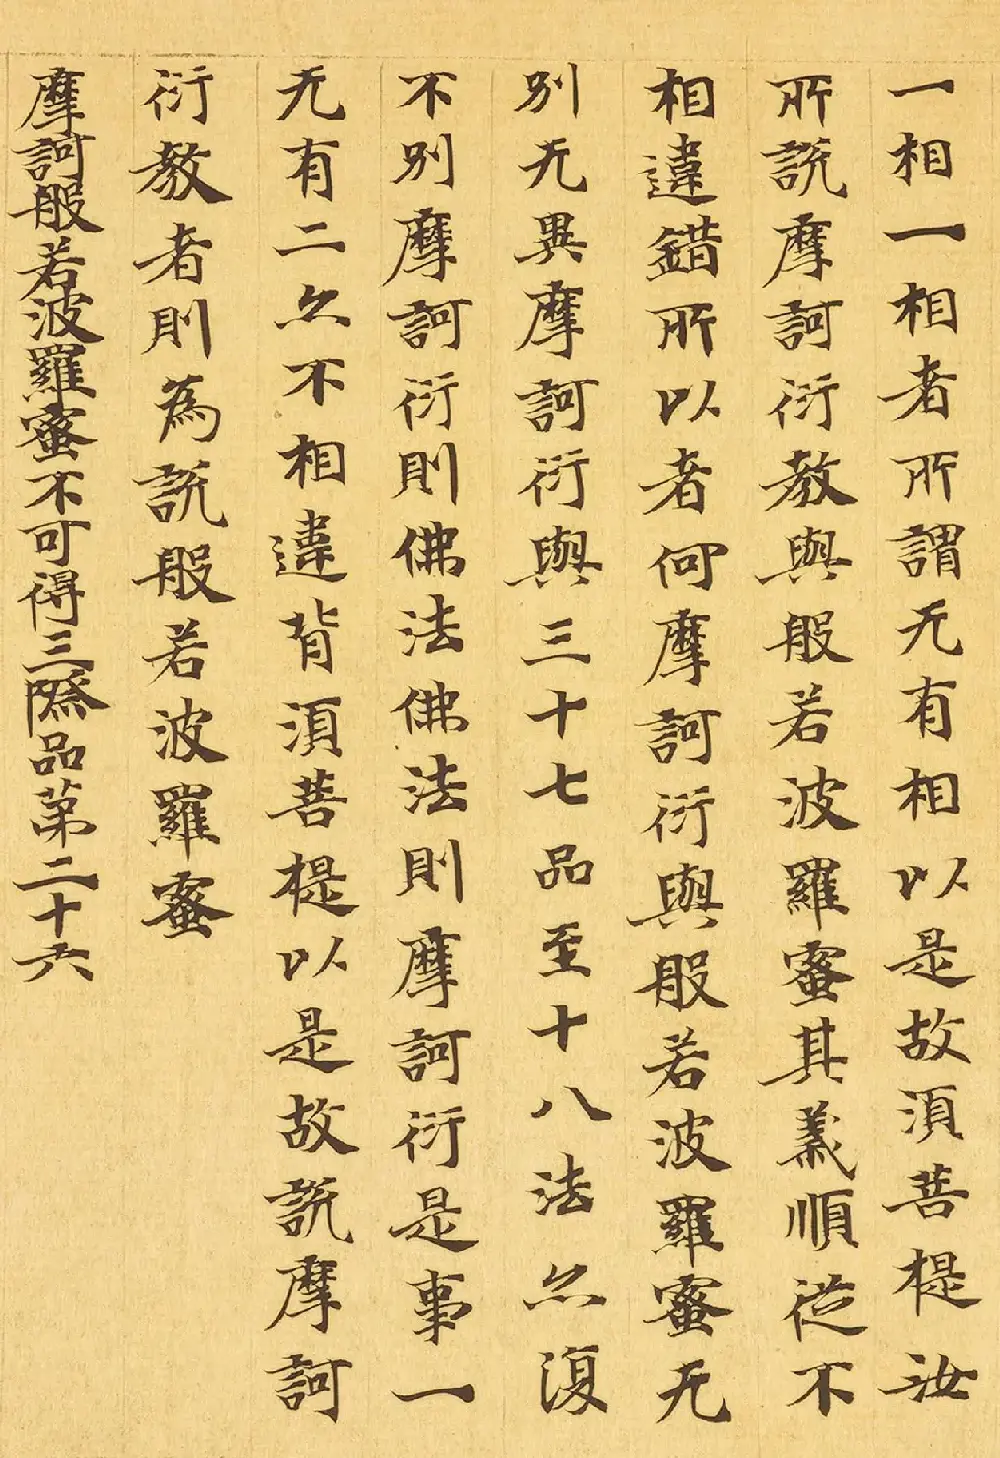 一相一相者所謂无有相以是故湏菩提汝
所說摩訶衍教與般若波羅蜜其義順從不
相違錯所以者何摩訶衍與般若波羅蜜无
別无異摩訶衍與三十七品至十八法亦復
不別摩訶衍則佛法佛法則摩訶衍是事一
无有二亦不相違背湏菩提以是故說摩訶
衍教者則為說般若波羅蜜
摩訶般若波羅蜜不可得三際品第二十六